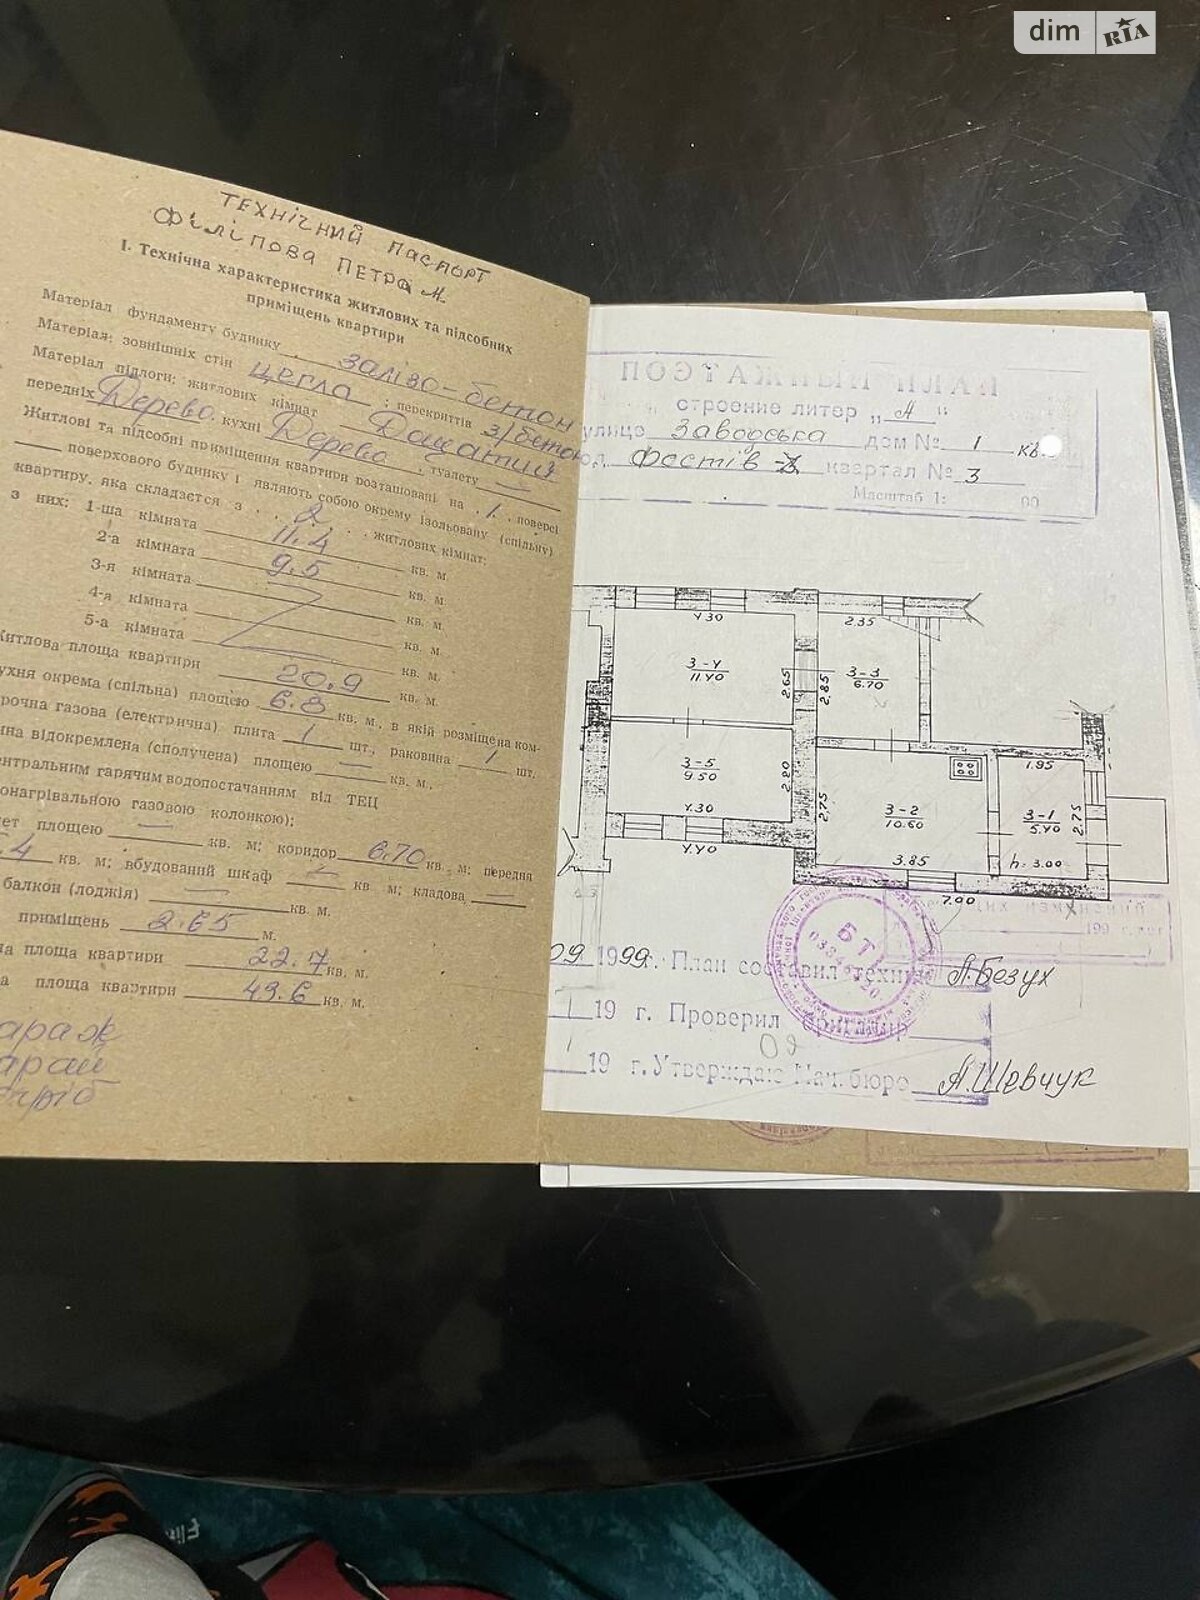 dim RIA
ТЕХНІЧНИЙ ПАСПОРТ
ФІЛІПОВА ПЕТРА М.
I. Технічна характеристика житлових та підсобних
приміщень квартири
Матеріал фундаменту будинку залізо-бетон
Матеріал: зовнішніх стін цегла; перекриттів з/бетон
Матеріал підлоги: житлових кімнат Дощатий
передніх Дерево, кухні Дерево, туалету —
Житлові та підсобні приміщення квартири розташовані на 1. поверсі
поверхового будинку і являють собою окрему ізольовану (спільну)
квартиру, яка складається з 2 житлових кімнат:
з них: 1-ша кімната 11.4 кв. м
2-а кімната 9.5 кв. м
3-я кімната кв. м.
4-я кімната кв. м.
5-а кімната кв. м.
Житлова площа квартири 20.9 кв. м.
ухня окрема (спільна) площею 6.8 кв. м., в якій розміщена ком-
рочна газова (електрична) плита 1 шт., раковина 1 шт.
нна відокремлена (сполучена) площею — кв. м.,
ентральним гарячим водопостачанням від ТЕЦ
онагрівальною газовою колонкою);
ет площею — кв. м; коридор 6.70 кв. м; передня
.4 кв. м; вбудований шкаф — кв м; кладова —
балкон (лоджія) — кв. м.
приміщень 2.65 м.
площа квартири 22.7 кв. м.
а площа квартири 43.6 кв. м.
араж
арай
огріб
ПОЭТАЖНЫЙ ПЛАН
строение литер „А"
улице Заводська дом № 1 кв.
Фастів-2 квартал № 3
Масштаб 1: 00
4.30
2.35
3-4
11.40
2.65
2.85
3-3
6.70
3-5
9.50
2.20
4.30
4.40
2.75
3-2
10.60
3.85
1.95
3-1
5.40
2.75
h=3.00
7.90
БТІ
199 г.
09 1999г. План составил техник А.Безух
19 г. Проверил бригадир
19 г. Утверждаю Нач. бюро А.Шевчук